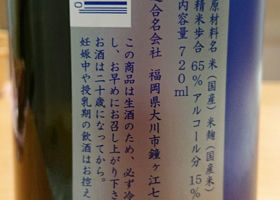 原材料名 米(国産)米麹(国産米)
精米歩合 65% アルコール分 15%
内容量 720ml
合名会社 福岡県大川市鐘ヶ江七
この商品は生酒のため、必ず冷
し、お早めにお召し上がり下さ
お酒は二十歳になってから。
妊娠中や授乳期の飲酒はお控え